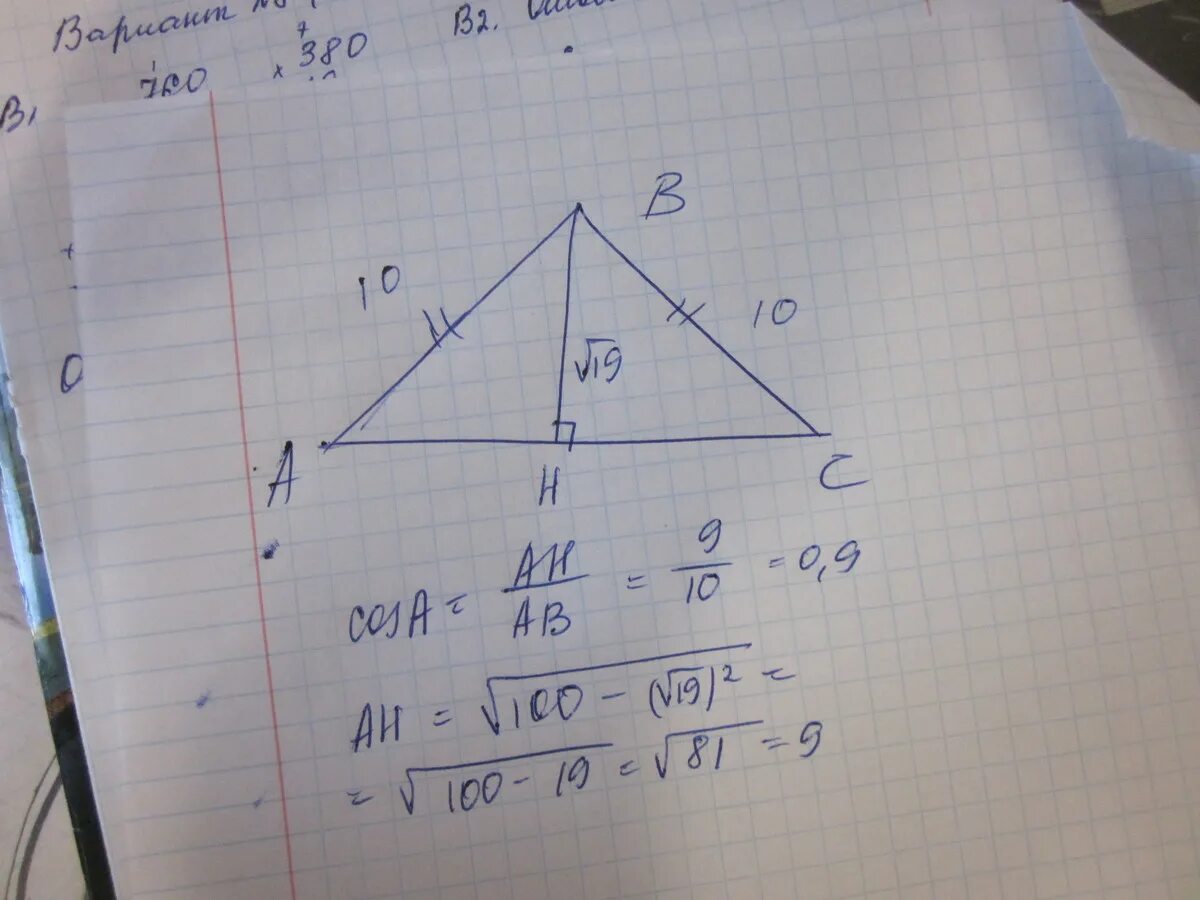 Вариант
B2.
7
380
×
760
B1
+
0
B
10
10
√19
A
H
C
cosA = AH/AB = 9/10 = 0,9
AH = √100 - (√19)² =
= √100 - 19 = √81 = 9